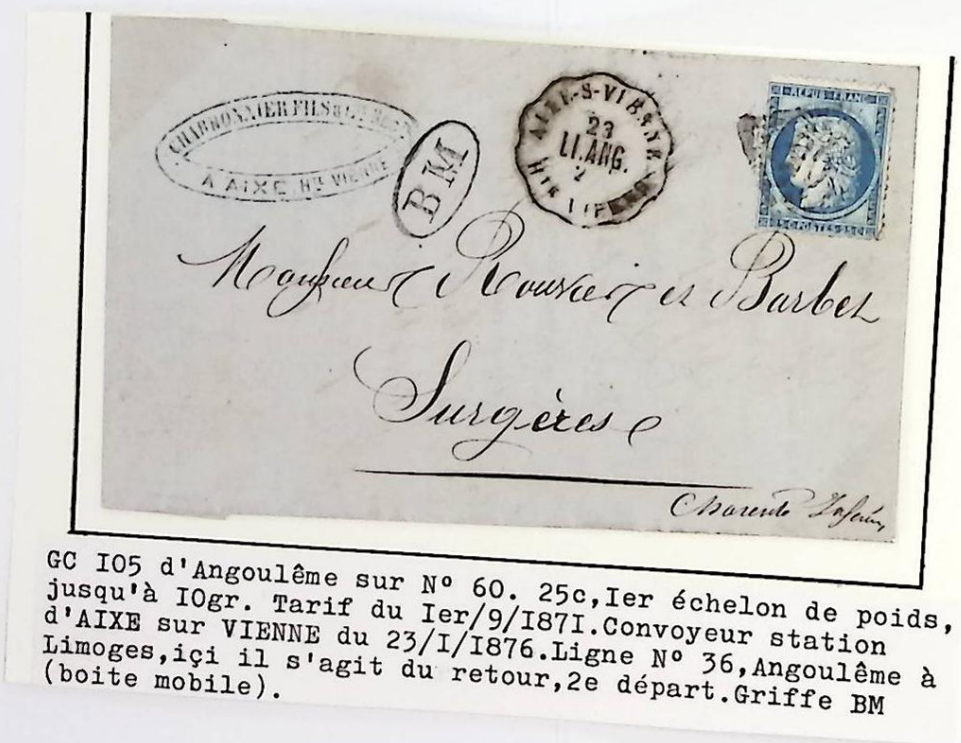 CHARBONNIER FILS
A AIXE Hte VIENNE
BM
AIXE-S-VIENNE
23
LI.ANG.
2
Hte VIENNE
REPUB FRANC
25 C POSTES 25 C
Monsieur Rouvier et Barbet
Surgères
Charente Inférre
GC I05 d'Angoulême sur N° 60. 25c,Ier échelon de poids,
jusqu'à IOgr. Tarif du Ier/9/I87I.Convoyeur station
d'AIXE sur VIENNE du 23/I/I876.Ligne N° 36,Angoulême à
Limoges,içi il s'agit du retour,2e départ.Griffe BM
(boite mobile).